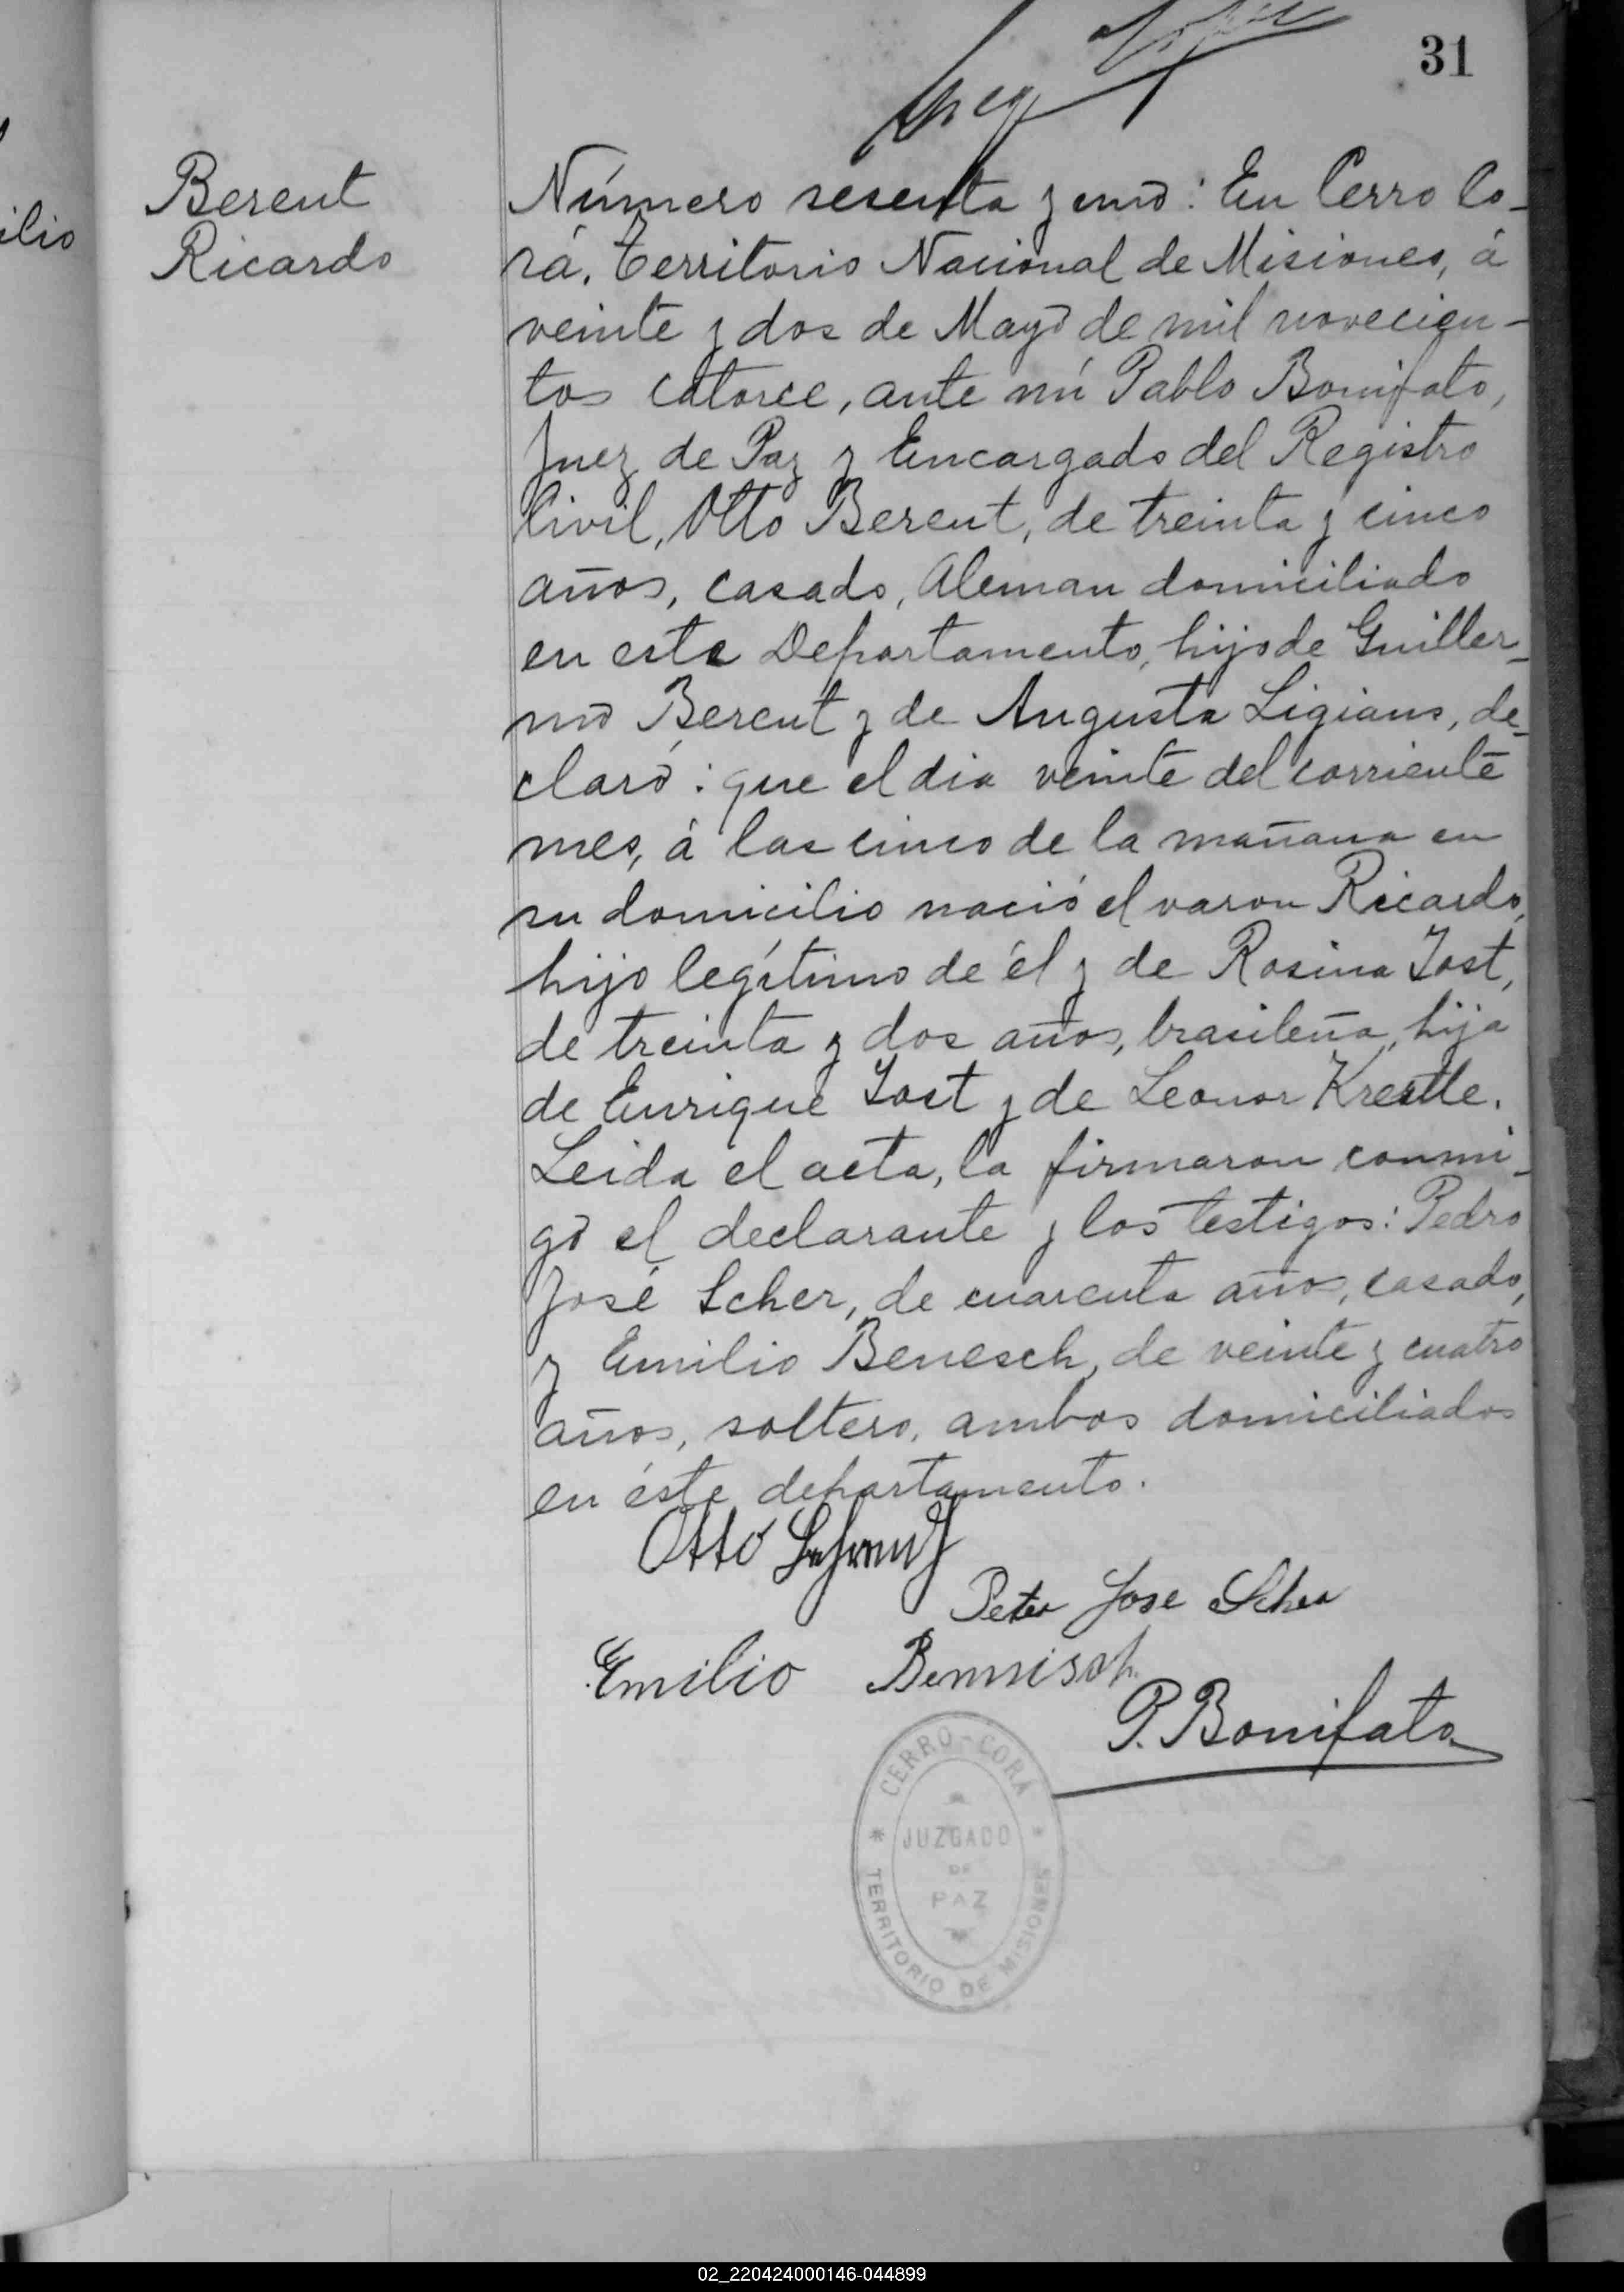 31
Berent
Ricardo
ilio
Número sesenta y uno: En Cerro Co-
rá, Territorio Nacional de Misiones, á
veinte y dos de Mayo de mil novecien-
tos catorce, ante mí Pablo Bonifato,
Juez de Paz y Encargado del Registro
Civil, Otto Berent, de treinta y cinco
años, casado, Aleman domiciliado
en este Departamento, hijo de Guiller-
mo Berent y de Augusta Ligians, de-
claró: que el dia veinte del corriente
mes, á las cinco de la mañana en
su domicilio nació el varon Ricardo,
hijo legítimo de él y de Rosina Jost,
de treinta y dos años, brasileña, hija
de Enrique Jost y de Leonor Krestle.
Leida el acta, la firmaron conmi-
go el declarante y los testigos: Pedro
José Scher, de cuarenta años, casado,
y Emilio Benesch, de veinte y cuatro
años, soltero, ambos domiciliados
en éste departamento.
Otto Behrend
Peter Jose Scher
Emilio Bennisch
P. Bonifato
CERRO-CORÁ
JUZGADO
DE
PAZ
TERRITORIO DE MISIONES
02_220424000146-044899